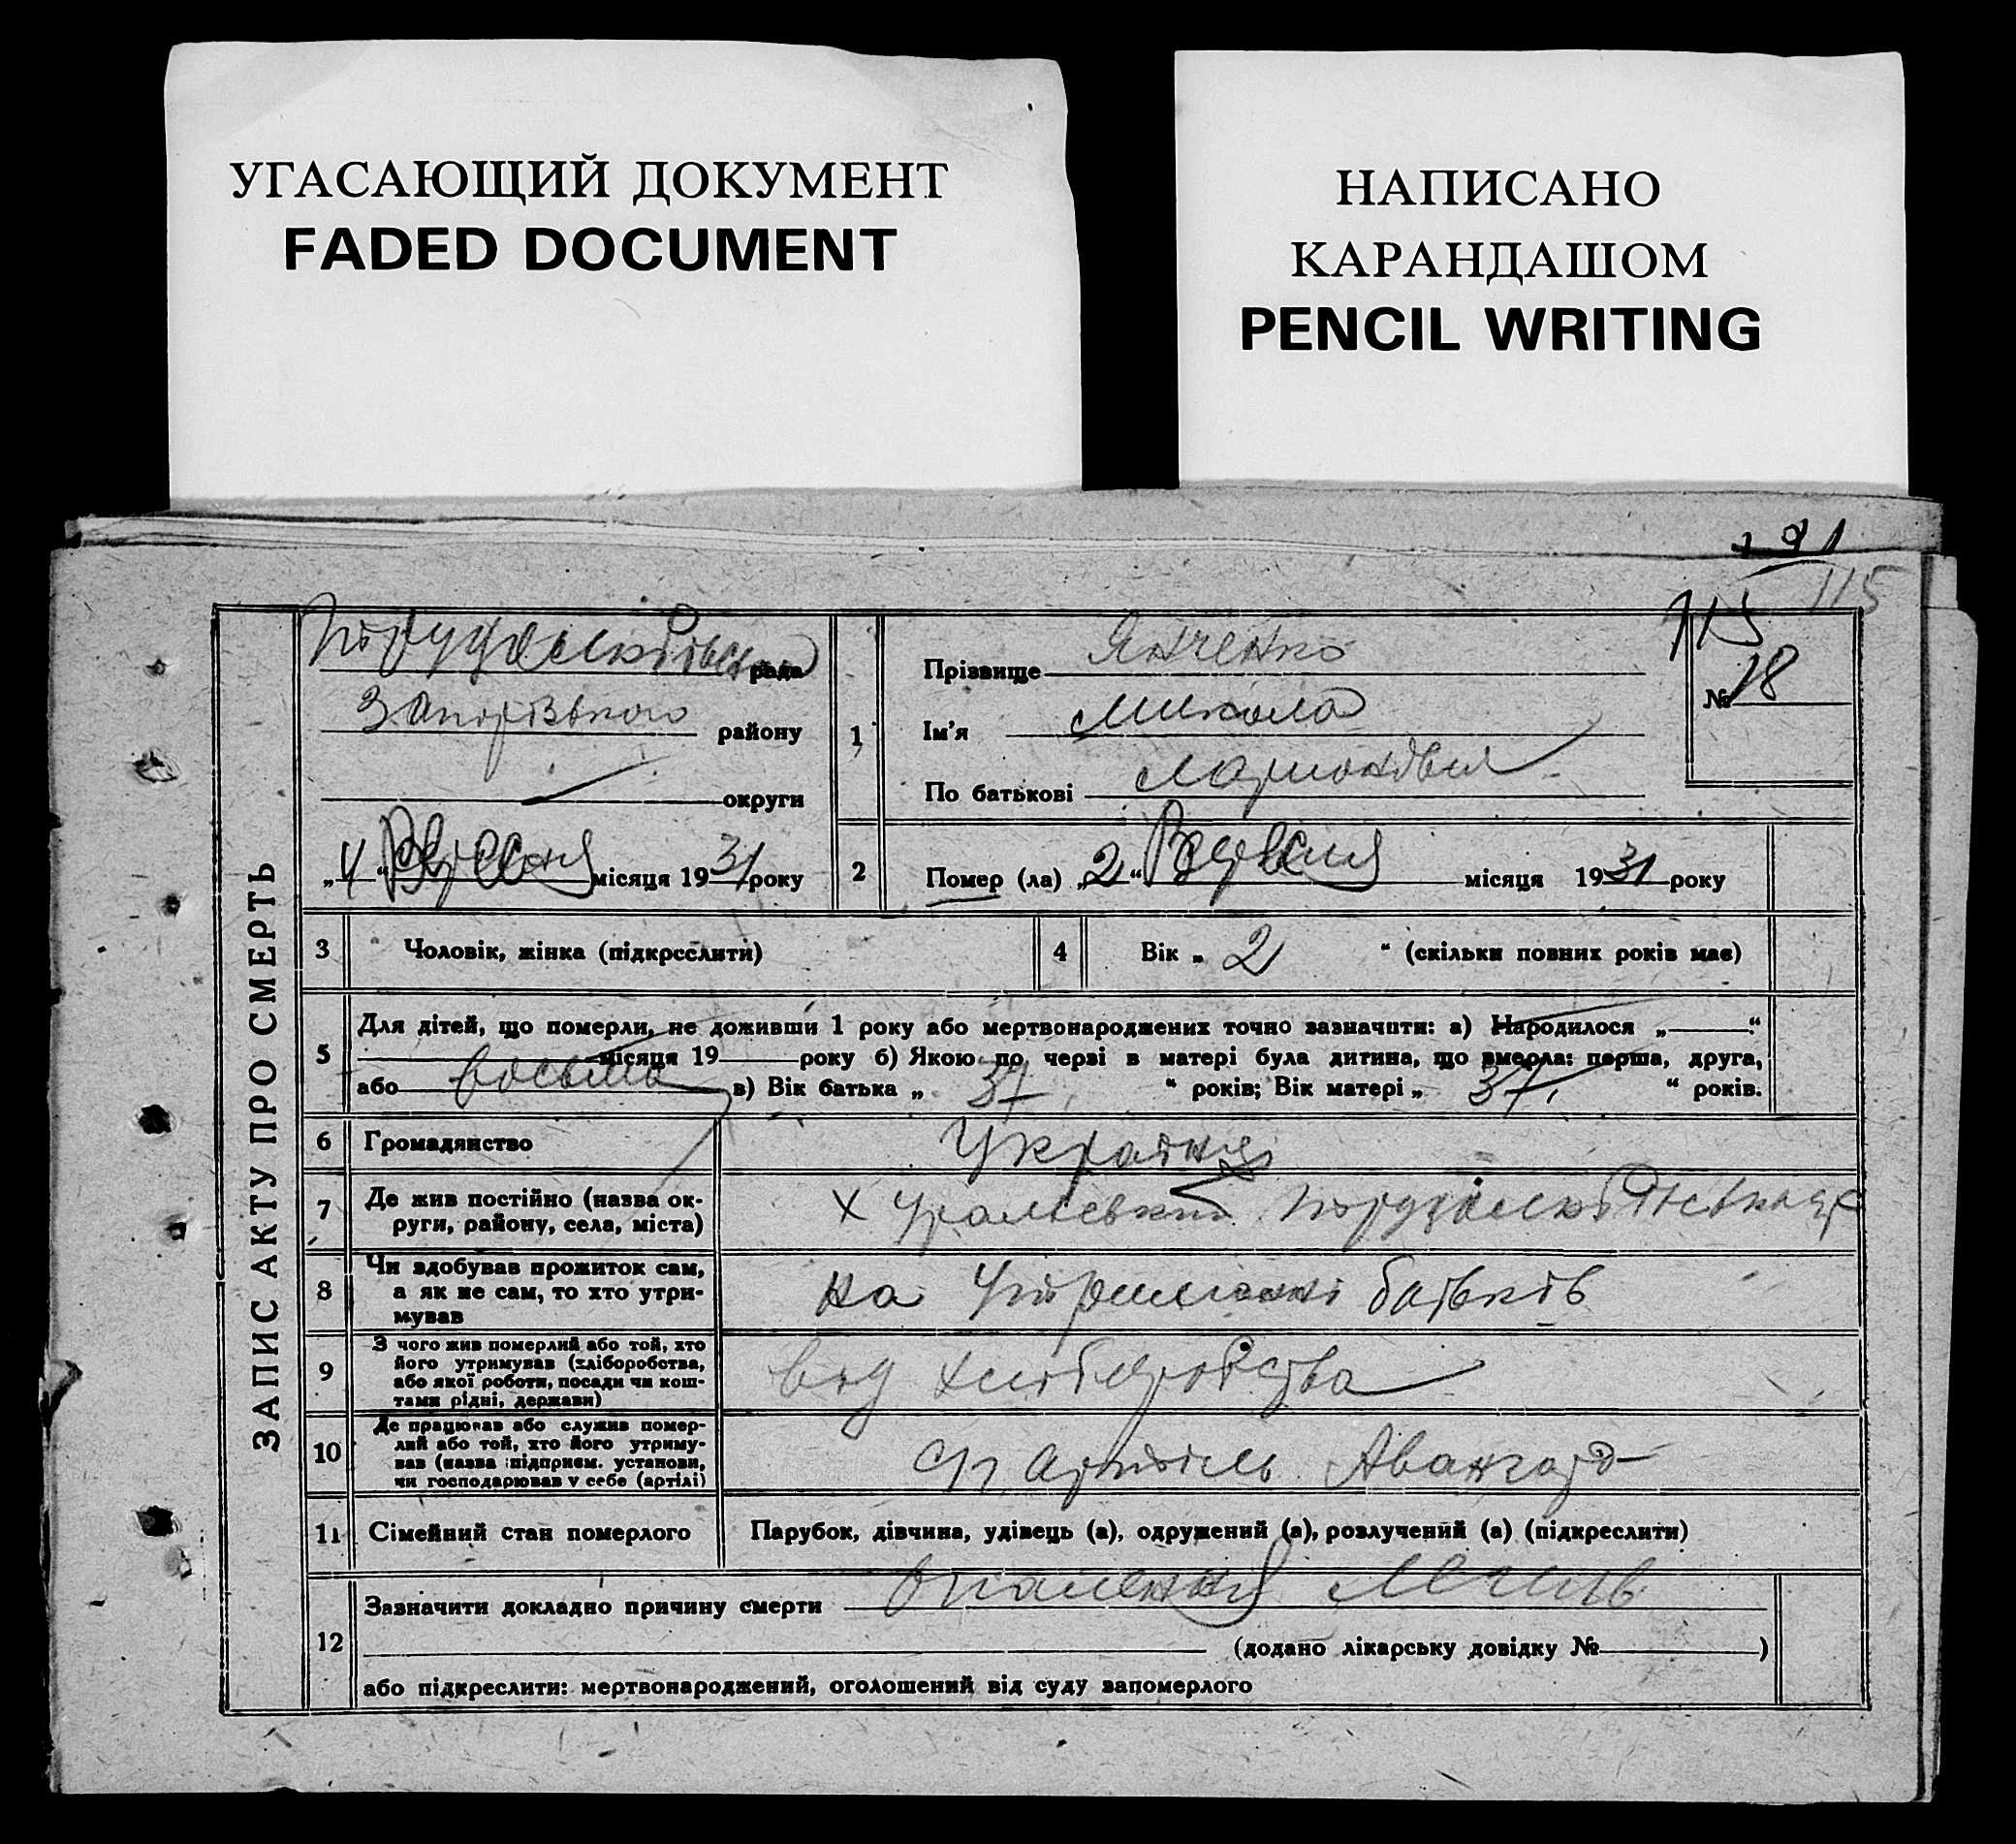 УГАСАЮЩИЙ ДОКУМЕНТ
FADED DOCUMENT
НАПИСАНО
КАРАНДАШОМ
PENCIL WRITING
115
115
ЗАПИС АКТУ ПРО СМЕРТЬ
рада
району
округи
„4“ місяця 1931 року
1
Прізвище Янченко
Ім'я Микола
По батькові
№ 18
2
Помер (ла) „2“ місяця 1931 року
3 Чоловік, жінка (підкреслити)
4 Вік „ 2 “ (скільки повних років має)
5 Для дітей, що померли, не доживши 1 року або мертвонароджених точно зазначити: а) Народилося „ “
місяця 19 року б) Якою по черві в матері була дитина, що вмерла: перша, друга,
або восьма в) Вік батька „ 37 “ років; Вік матері „ 37 “ років.
6 Громадянство
7 Де жив постійно (назва округи, району, села, міста) х
8 Чи здобував прожиток сам, а як не сам, то хто утримував на батьків
9 З чого жив померлий або той, хто його утримував (хліборобства, або якої роботи, посади чи коштами рідні, держави)
10 Де працював або служив померлий або той, хто його утримував (назва підприєм. установи, чи господарював у себе (артілі) Авангард
11 Сімейний стан померлого Парубок, дівчина, удівець (а), одружений (а), розлучений (а) (підкреслити)
12 Зазначити докладно причину смерти
(додано лікарську довідку № )
або підкреслити: мертвонароджений, оголошений від суду запомерлого